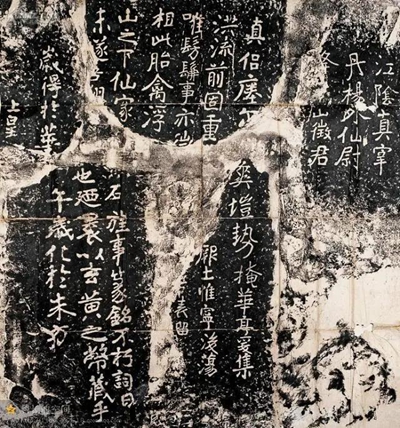 上皇
歲得於華
未遂吾翔
山之下仙家
相此胎禽浮
唯髣髴事亦微
洪流前固重
真侶瘞尒
徵君
丹楊外仙尉
江陰真宰
午歲化於朱方
也廼裹以玄黄之幣藏乎
石旌事篆銘不朽詞曰
表留
厥土惟寧後蕩
爽塏勢掩華亭爰集